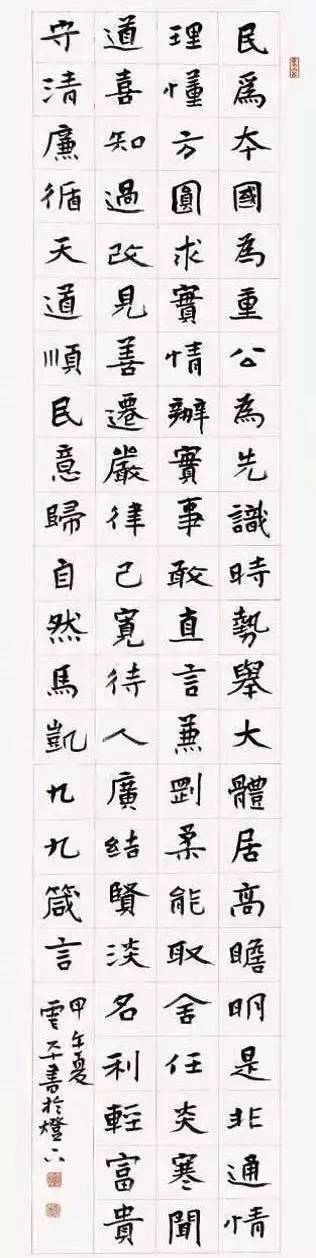 民為本國為重公為先識時勢舉大體居高瞻明是非通情
理懂方圓求實情辦實事敢直言兼剛柔能取舍任炎寒聞
道喜知過改見善遷嚴律己寬待人廣結賢淡名利輕富貴
守清廉循天道順民意歸自然馬凱九九箴言
甲午夏
書於燈下